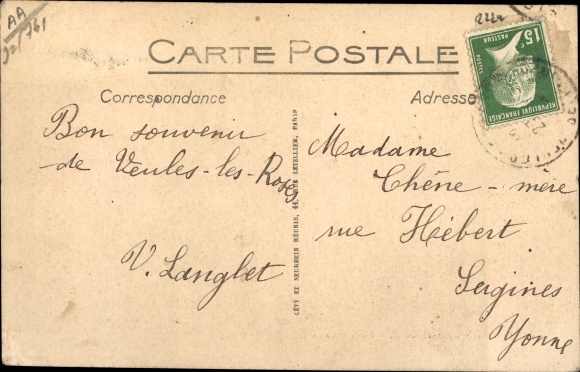 AA
CARTE POSTALE
Correspondance
Adresse
Bon souvenir
de Veules-les-Roses
V. Langlet
LÉVY ET NEURDEIN RÉUNIS, 44, RUE LETELLIER, PARIS
Madame
Chêne-mère
rue Hébert
Sergines
Yonne
15c
PASTEUR
POSTES
REPUBLIQUE FRANÇAISE